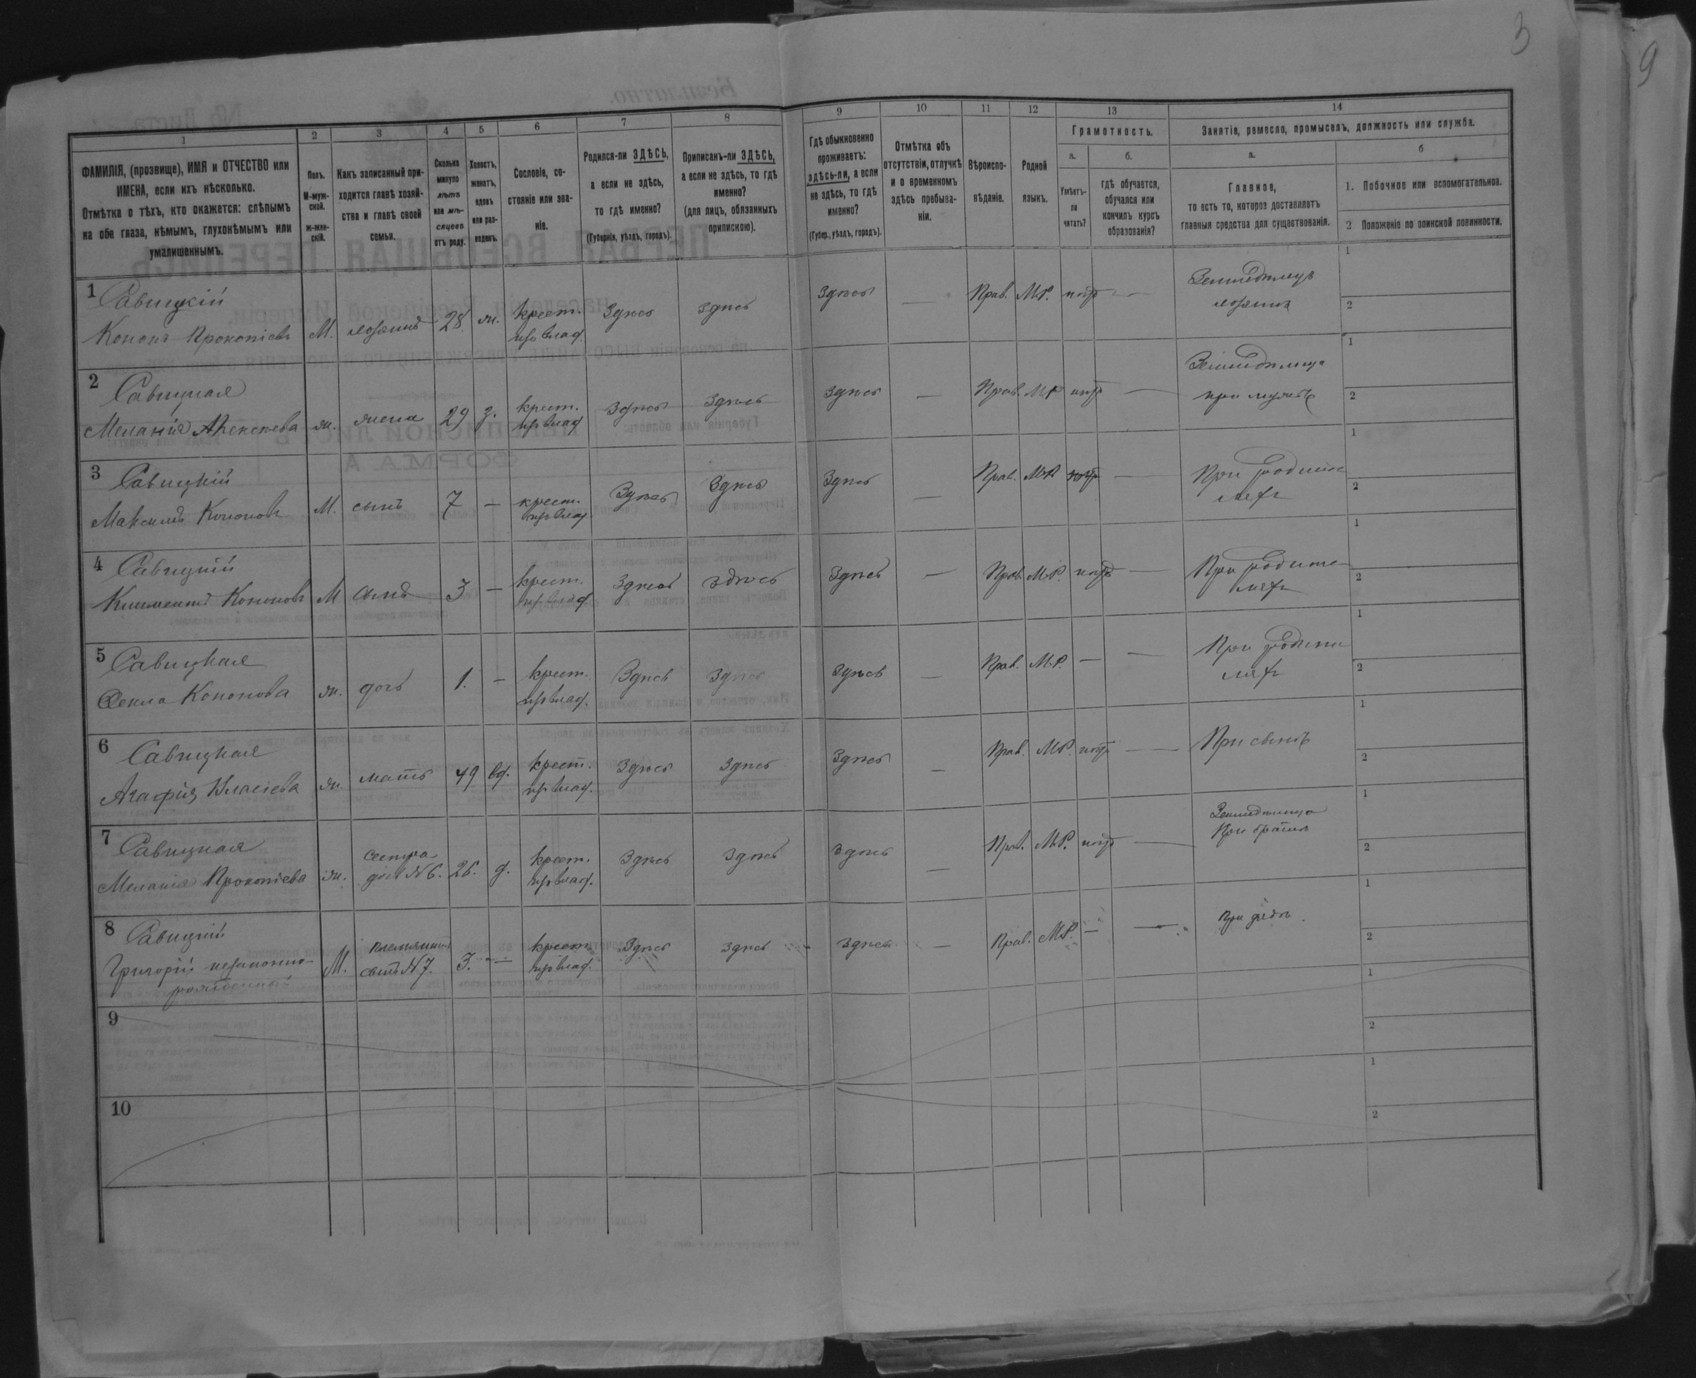 3
9
1
2
3
4
5
6
7
8
9
10
11
12
13
14
ФАМИЛІЯ, (прозвище), ИМЯ и ОТЧЕСТВО или
ИМЕНА, если ихъ нѣсколько.
Отмѣтка о тѣхъ, кто окажется: слѣпымъ
на оба глаза, нѣмымъ, глухонѣмымъ или
умалишеннымъ.
Полъ.
М-муж-
ской.
ж-жен-
скій.
Какъ записанный при-
ходится главѣ хозяй-
ства и главѣ своей
семьи.
Сколько
минуло
лѣтъ
или мѣ-
сяцевъ
отъ роду.
Холостъ,
женатъ,
вдовъ
или раз-
веденъ.
Сословіе, со-
стояніе или зва-
ніе.
Родился-ли ЗДѢСЬ,
а если не здѣсь,
то гдѣ именно?
(Губернія, уѣздъ, городъ).
Приписанъ-ли ЗДѢСЬ,
а если не здѣсь, то гдѣ
именно?
(для лицъ, обязанныхъ
припискою).
Гдѣ обыкновенно
проживаетъ:
здѣсь-ли, а если
не здѣсь, то гдѣ
именно?
(Губер., уѣздъ, городъ).
Отмѣтка объ
отсутствіи, отлучкѣ
и о временномъ
здѣсь пребыва-
ніи.
Вѣроиспо-
вѣданіе.
Родной
языкъ.
Грамотность.
а.
Умѣетъ-
ли
читать?
б.
гдѣ обучается,
обучался или
кончилъ курсъ
образованія?
Занятіе, ремесло, промыселъ, должность или служба.
а.
Главное,
то есть то, которое доставляетъ
главныя средства для существованія.
б
1. Побочное или вспомогательное.
2 Положеніе по воинской повинности.
1 Савицкій
Кононъ Прокопіевъ М. хозяинъ 28. ж. крест. Здѣсь здѣсь здѣсь — Прав. М.Р. нѣтъ — Земледѣлецъ
хозяинъ
1
2
2 Савицкая
Меланія Алексѣева ж. жена 29 з. крест. здѣсь здѣсь здѣсь Прав. М.Р. нѣтъ — Земледѣлица
при мужѣ
1
2
3 Савицкій
Максимъ Кононовъ М. сынъ 7 — крест. Здѣсь Здѣсь Здѣсь — Прав. М.Р. нѣтъ — При родите
ляхъ
1
2
4 Савицкій
Климентій Кононовъ М сынъ 3 — крест. Здѣсь здѣсь Здѣсь — Прав. М.Р. нѣтъ — При родите
ляхъ
1
2
5 Савицкая
Ѳекла Кононова ж. дочь 1. — крест. Здѣсь Здѣсь Здѣсь — Прав. М.Р. — — При родите
ляхъ
1
2
6 Савицкая
Агафія Власіева ж. мать 49 вд. крест. Здѣсь Здѣсь Здѣсь — Прав. М.Р. нѣтъ — При сынѣ
1
2
7 Савицкая
Меланія Прокопіева ж. сестра
дочь №6. 26. д. крест. Здѣсь Здѣсь здѣсь — Прав. М.Р. нѣтъ — Земледѣлица
При братѣ
1
2
8 Савицкій
Григорій незаконно-
рожденный М. племянникъ
сынъ №7. 3. — крест. Здѣсь здѣсь здѣсь — Прав. М.Р. — —
1
2
9
1
2
10
1
2